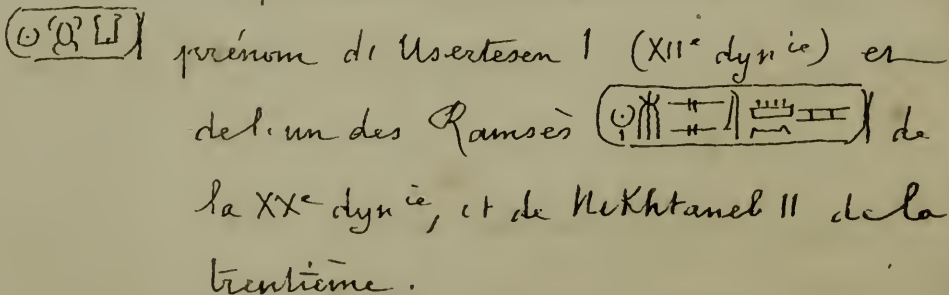 prénom de Usertesen I (XIIe dynie) et
de l'un des Ramsès de
la XXe dynie, et de Nekhtaneb II de la
trentième.